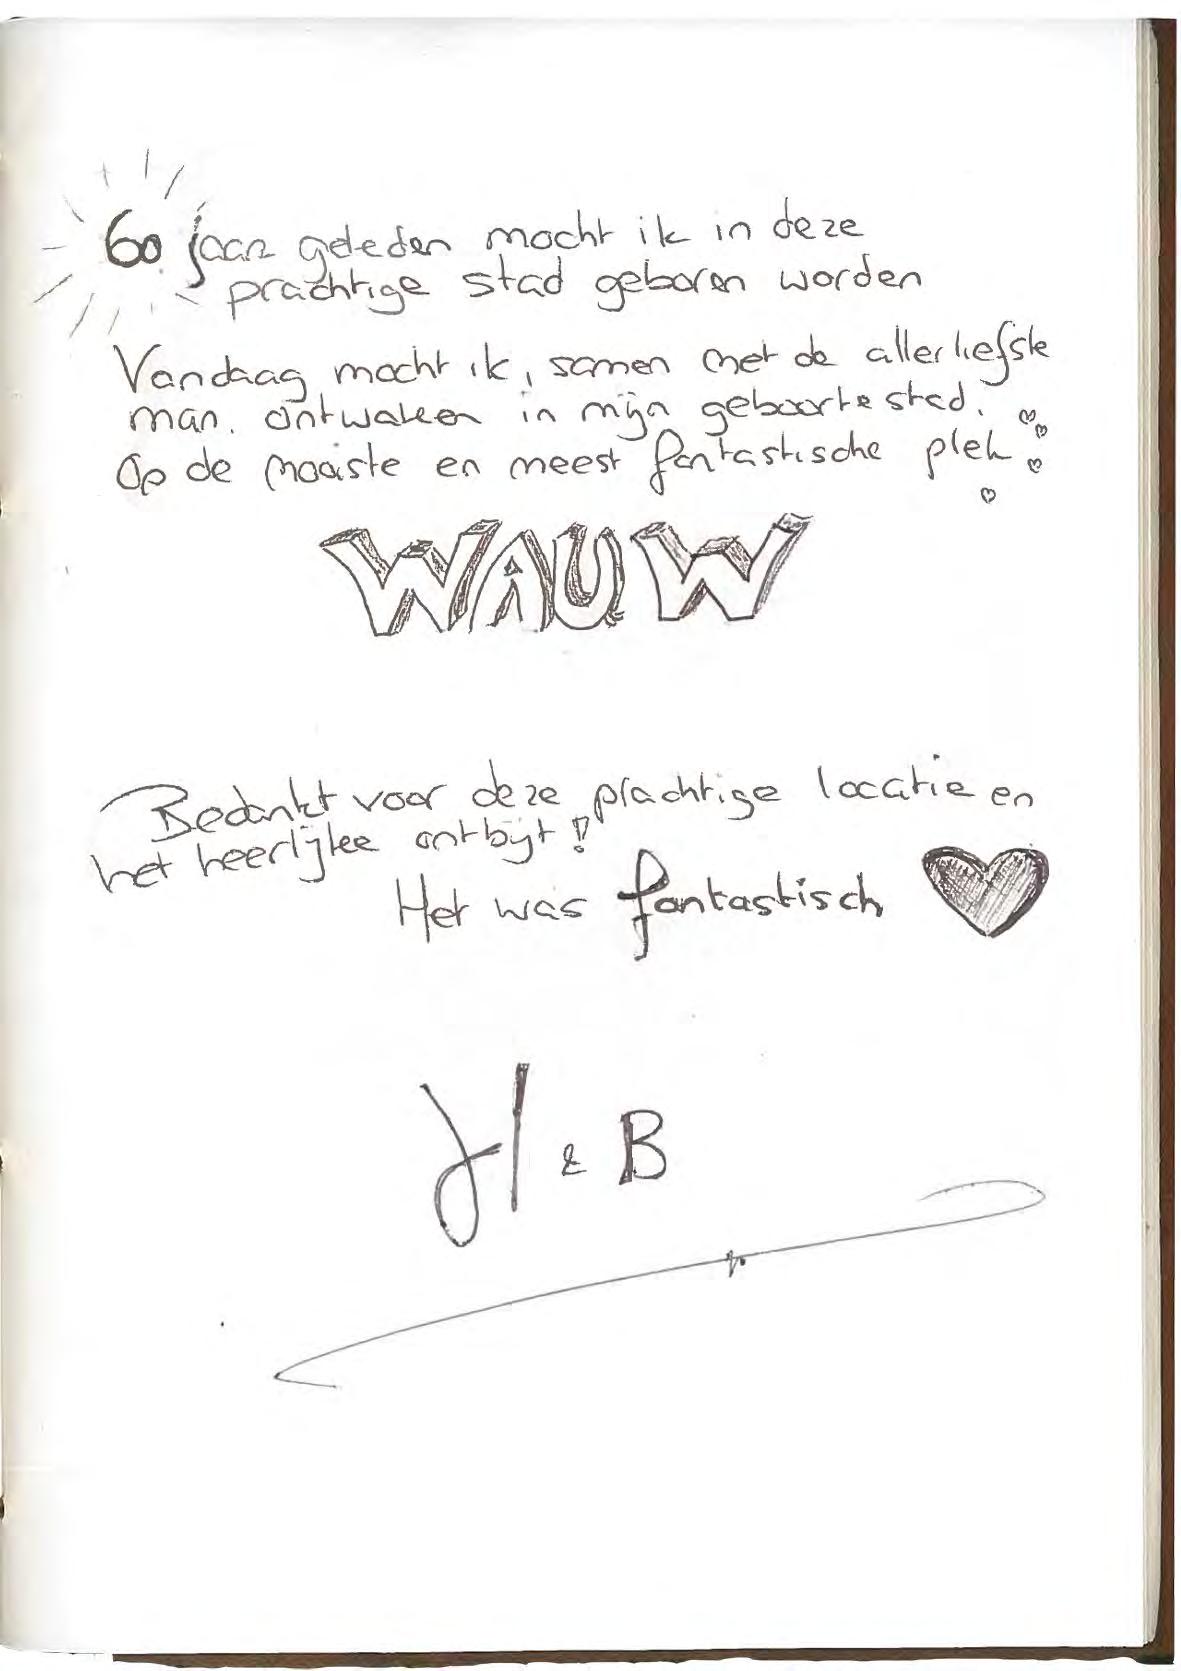 60 jaar geleden mocht ik in deze
prachtige stad geboren worden
Vandaag mocht ik, samen met de allerliefste
man, ontwaken in mijn geboortestad.
Op de mooiste en meest fantastische plek
WAUW
Bedankt voor deze prachtige locatie en
het heerlijke ontbijt!
Het was fantastisch
H & B